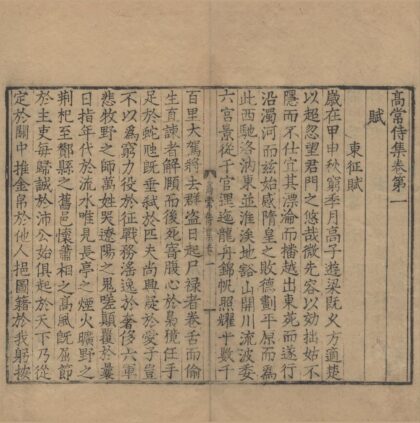 高常侍集卷第一
賦
東征賦
歲在甲申秋窮季月高子遊梁既久方適楚
以超忽望君門之悠哉微先容以効拙姑不
隱而不仕宜其漂淪而播越出東苑而遂行
沿濁河而兹始感隋皇之敗德劃平原而爲
此西馳洛汭東並淮涘地豁山開川流波委
六宮景從千官邐迤龍舟錦帆照耀乎數千
百里大駕將去群盜日起尸禄者卷舌而偷
生直諫者解頤而後死寄腹心於梟獍任手
足於蛇虺既弑於匹夫尚興疑於愛子豈
不以爲窮力役於征戰務滛逸於奢侈六軍
悲牧野之師萬姓哭遼陽之鬼嗟顛覆於曩
日指年代於流水唯見長亭之煙火曠野之
荆杞至酇縣之舊邑懷蕭相之高風既屈節
於主吏每歸誠於沛公始俱起於天下乃從
定於關中推金帛於他人挹圖籍於我躬按